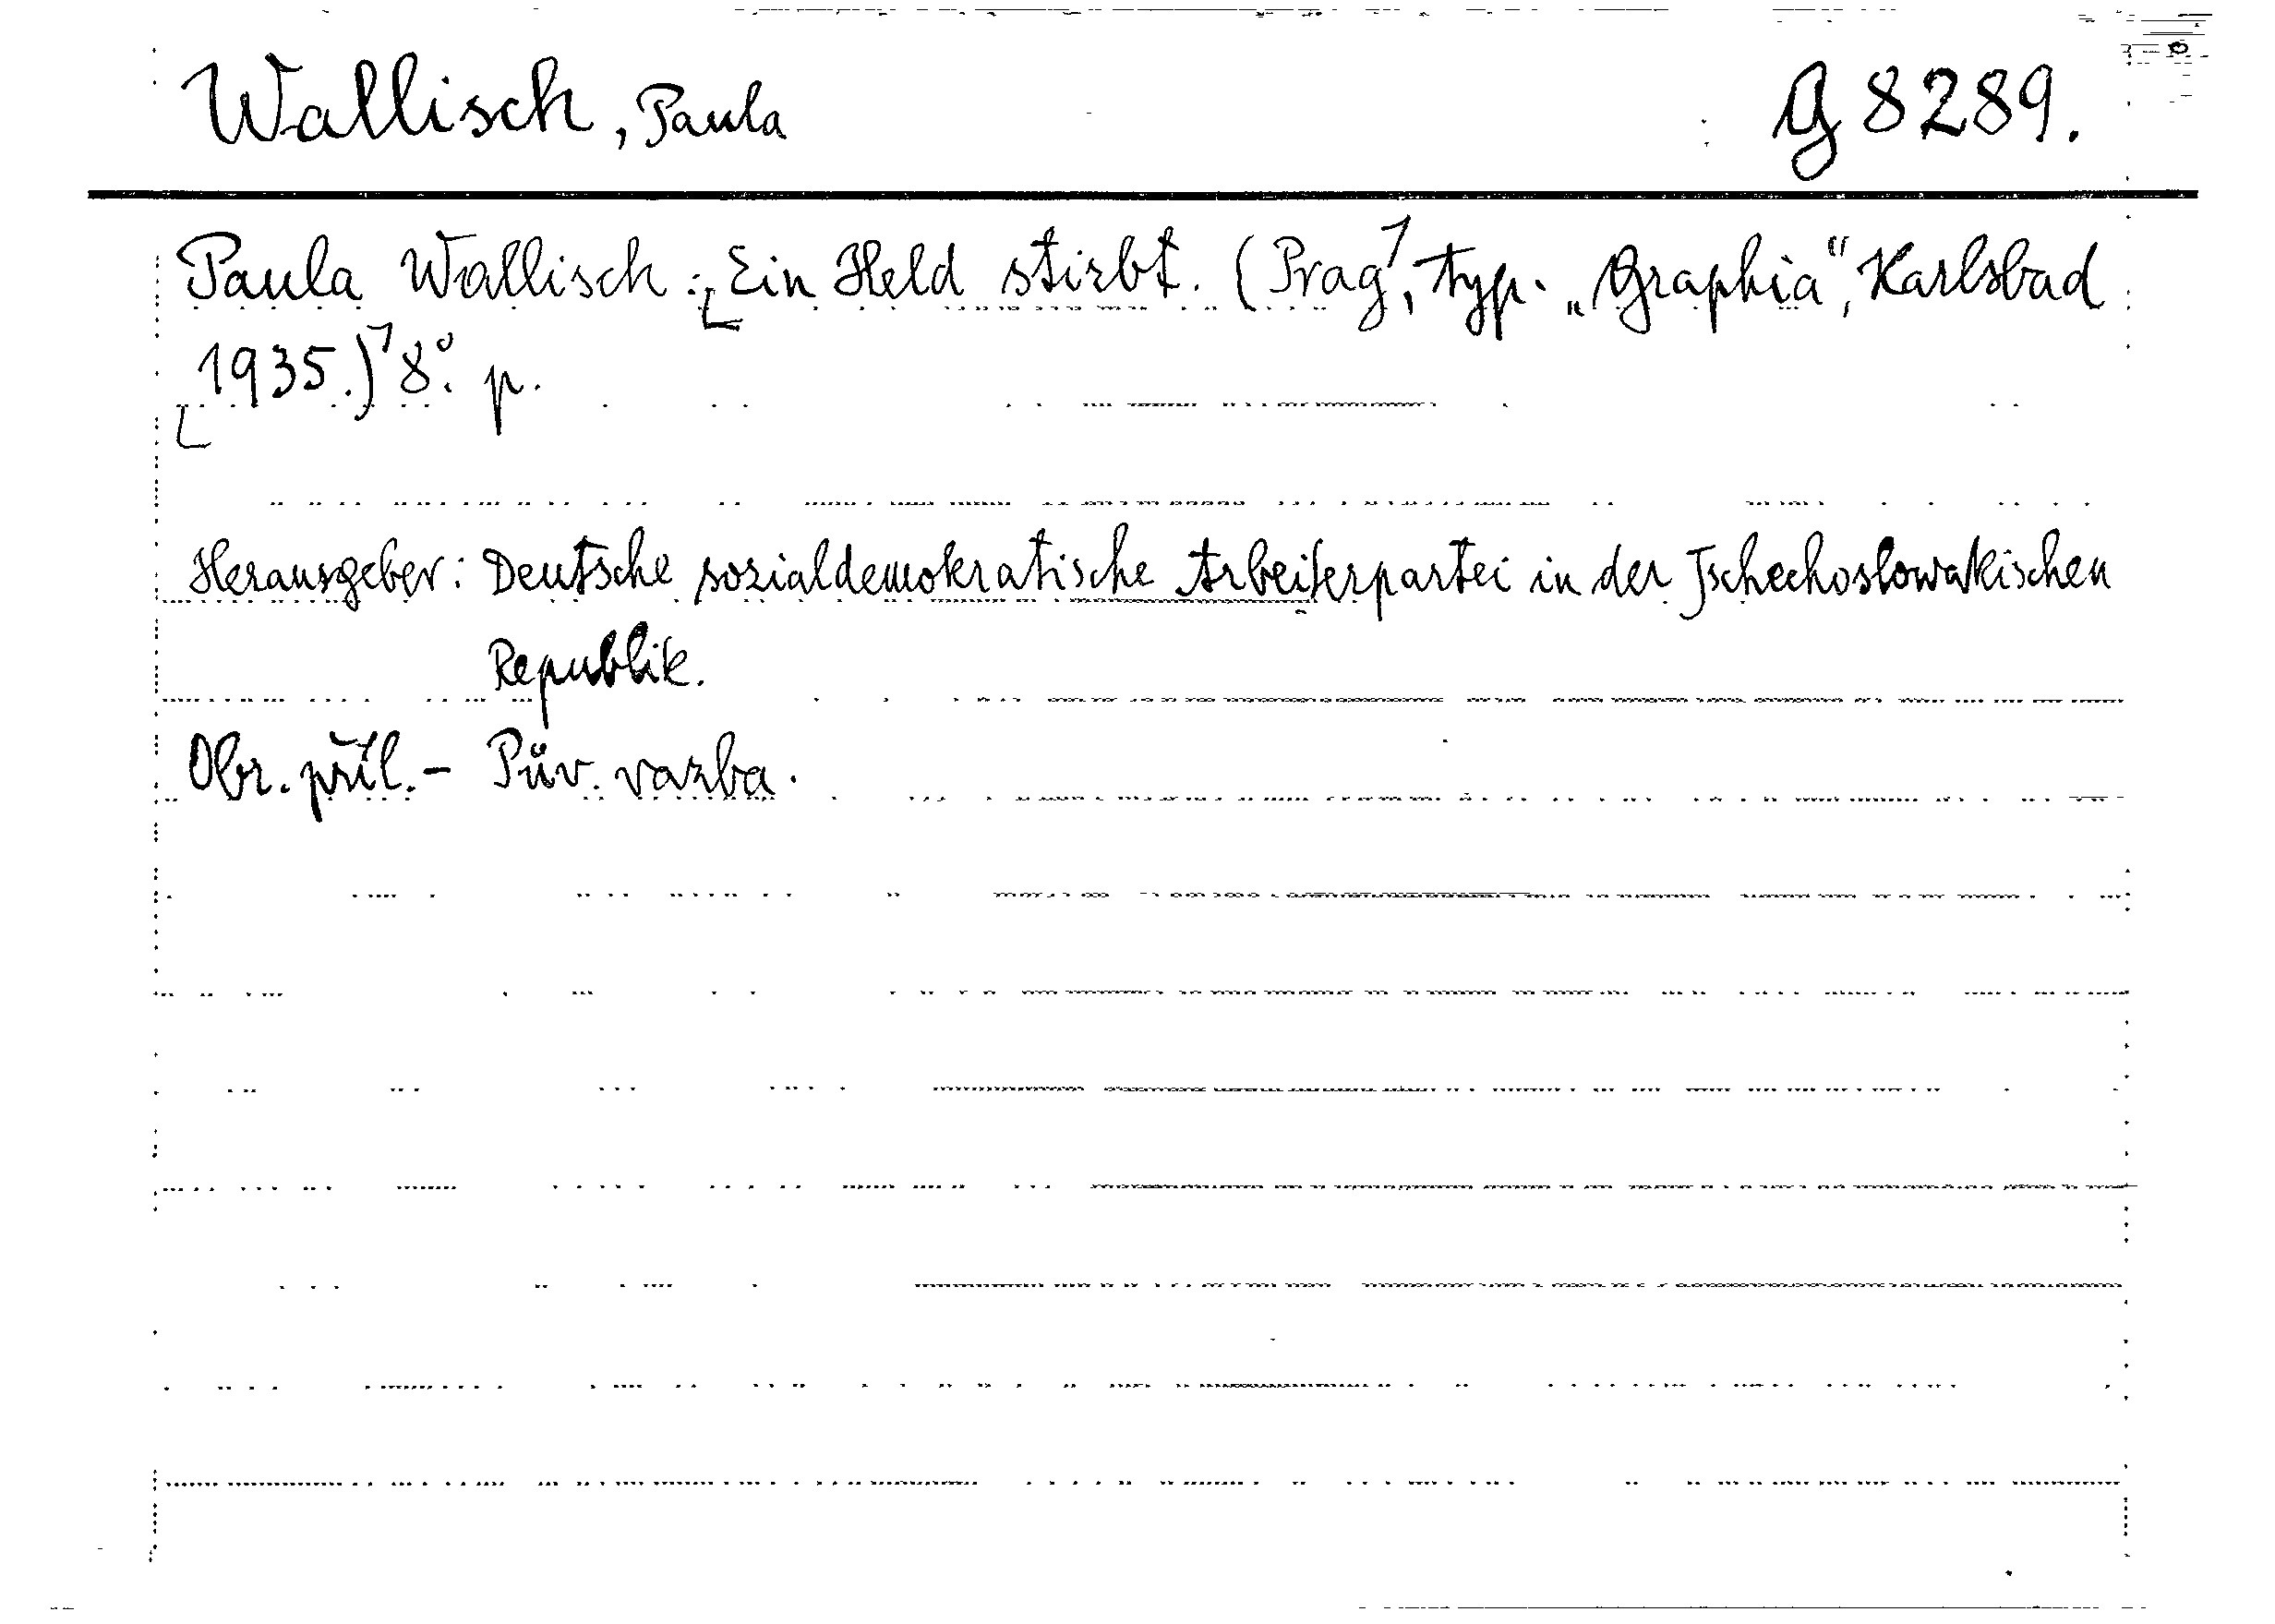 Wallisch, Paula
G 8289.
Paula Wallisch: Ein Held stirbt. (Prag, typ. „Graphia“, Karlsbad
1935.) 8°. p.
Herausgeber: Deutsche sozialdemokratische Arbeiterpartei in der Tschechoslowakischen
Republik.
Obr. příl. – Pův. vazba.